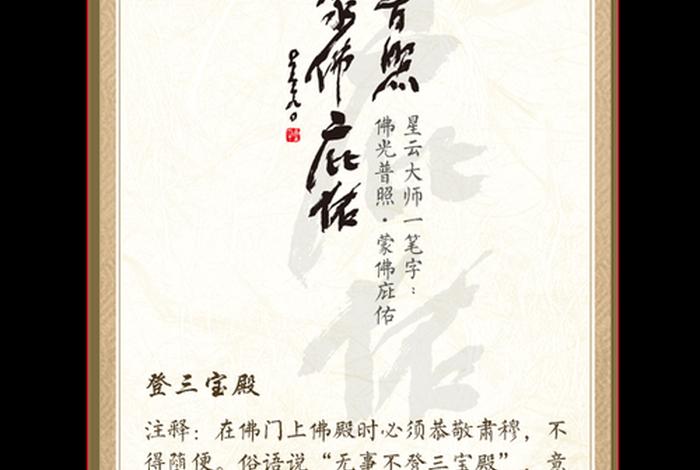 普照
蒙佛庇佑
星云大师一笔字：
佛光普照·蒙佛庇佑
登三宝殿
注释：在佛门上佛殿时必须恭敬肃穆，不
得随便。俗语说“无事不登三宝殿”，意